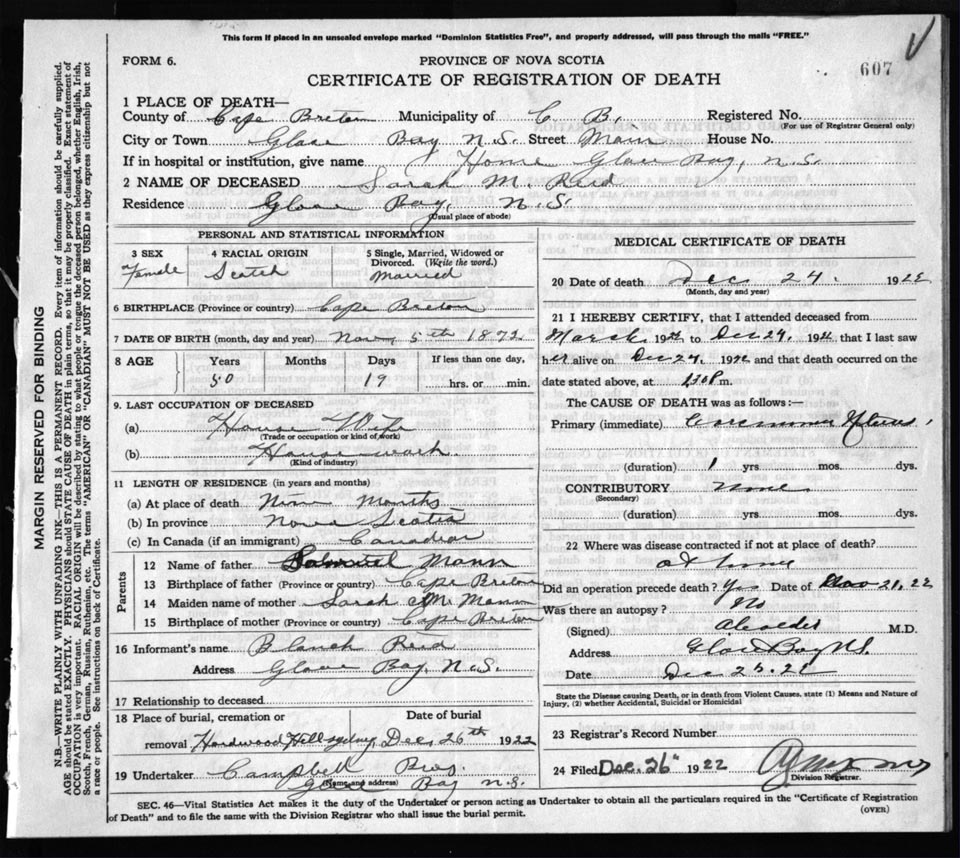 This form if placed in an unsealed envelope marked "Dominion Statistics Free", and properly addressed, will pass through the mails "FREE."
FORM 6.
PROVINCE OF NOVA SCOTIA
607
CERTIFICATE OF REGISTRATION OF DEATH
1 PLACE OF DEATH—
County of Cape Breton Municipality of C. B. Registered No.
(For use of Registrar General only)
City or Town Glace Bay N.S. Street Main House No.
If in hospital or institution, give name Home Glace Bay, N.S.
2 NAME OF DECEASED Sarah M. Reid
Residence Glace Bay, N.S.
(Usual place of abode)
PERSONAL AND STATISTICAL INFORMATION
3 SEX
Female
4 RACIAL ORIGIN
Scotch
5 Single, Married, Widowed or Divorced. (Write the word.)
Married
6 BIRTHPLACE (Province or country) Cape Breton
7 DATE OF BIRTH (month, day and year) Nov, 5th 1872
8 AGE
Years Months Days If less than one day,
50 19 hrs. or min.
9. LAST OCCUPATION OF DECEASED
(a) House Wife
(Trade or occupation or kind of work)
(b) House work.
(Kind of industry)
11 LENGTH OF RESIDENCE (in years and months)
(a) At place of death Nine Months
(b) In province Nova Scotia
(c) In Canada (if an immigrant) Canadian
Parents
12 Name of father Samuel Mann
13 Birthplace of father (Province or country) Cape Breton
14 Maiden name of mother Sarah M. Mann
15 Birthplace of mother (Province or country) Cape Breton
16 Informant's name Blanch Reid
Address Glace Bay, N.S.
17 Relationship to deceased
18 Place of burial, cremation or Date of burial
removal Hardwood Hill Sydney, Dec, 26th 1922
19 Undertaker Campbell Bros.
(Name and address)
Glace Bay N.S.
MEDICAL CERTIFICATE OF DEATH
20 Date of death Dec 24. 1922
(Month, day and year)
21 I HEREBY CERTIFY, that I attended deceased from
March 1922 to Dec 24, 1922, that I last saw
her alive on Dec 24, 1922 and that death occurred on
date stated above, at 1.30 P. m.
The CAUSE OF DEATH was as follows:—
Primary (immediate) Carcinoma Uterus
(duration) 1 yrs. mos. dys.
CONTRIBUTORY None
(Secondary)
(duration) yrs. mos. dys.
22 Where was disease contracted if not at place of death?
at home
Did an operation precede death? Yes Date of Nov 21, 22
Was there an autopsy? No
(Signed) M.D.
Address Glace Bay N.S.
Date Dec 25. 22
State the Disease causing Death, or in death from Violent Causes, state (1) Means and Nature of
Injury, (2) whether Accidental, Suicidal or Homicidal
23 Registrar's Record Number
24 Filed Dec. 26th 1922
Division Registrar.
SEC. 46—Vital Statistics Act makes it the duty of the Undertaker or person acting as Undertaker to obtain all the particulars required in the "Certificate of Registration
of Death" and to file the same with the Division Registrar who shall issue the burial permit.
(OVER)
MARGIN RESERVED FOR BINDING
N.B.—WRITE PLAINLY WITH UNFADING INK—THIS IS A PERMANENT RECORD. Every item of information should be carefully supplied.
AGE should be stated EXACTLY. PHYSICIANS should STATE CAUSE OF DEATH in plain terms, so that it may be properly classified. Exact statement of
OCCUPATION is very important. RACIAL ORIGIN will be described by stating to what people or tongue the deceased person belonged, whether English, Irish,
Scotch, French, German, Russian, Ruthenian, etc. The terms "AMERICAN" OR "CANADIAN" MUST NOT BE USED as they express citizenship but not
a race or people. See instructions on back of Certificate.